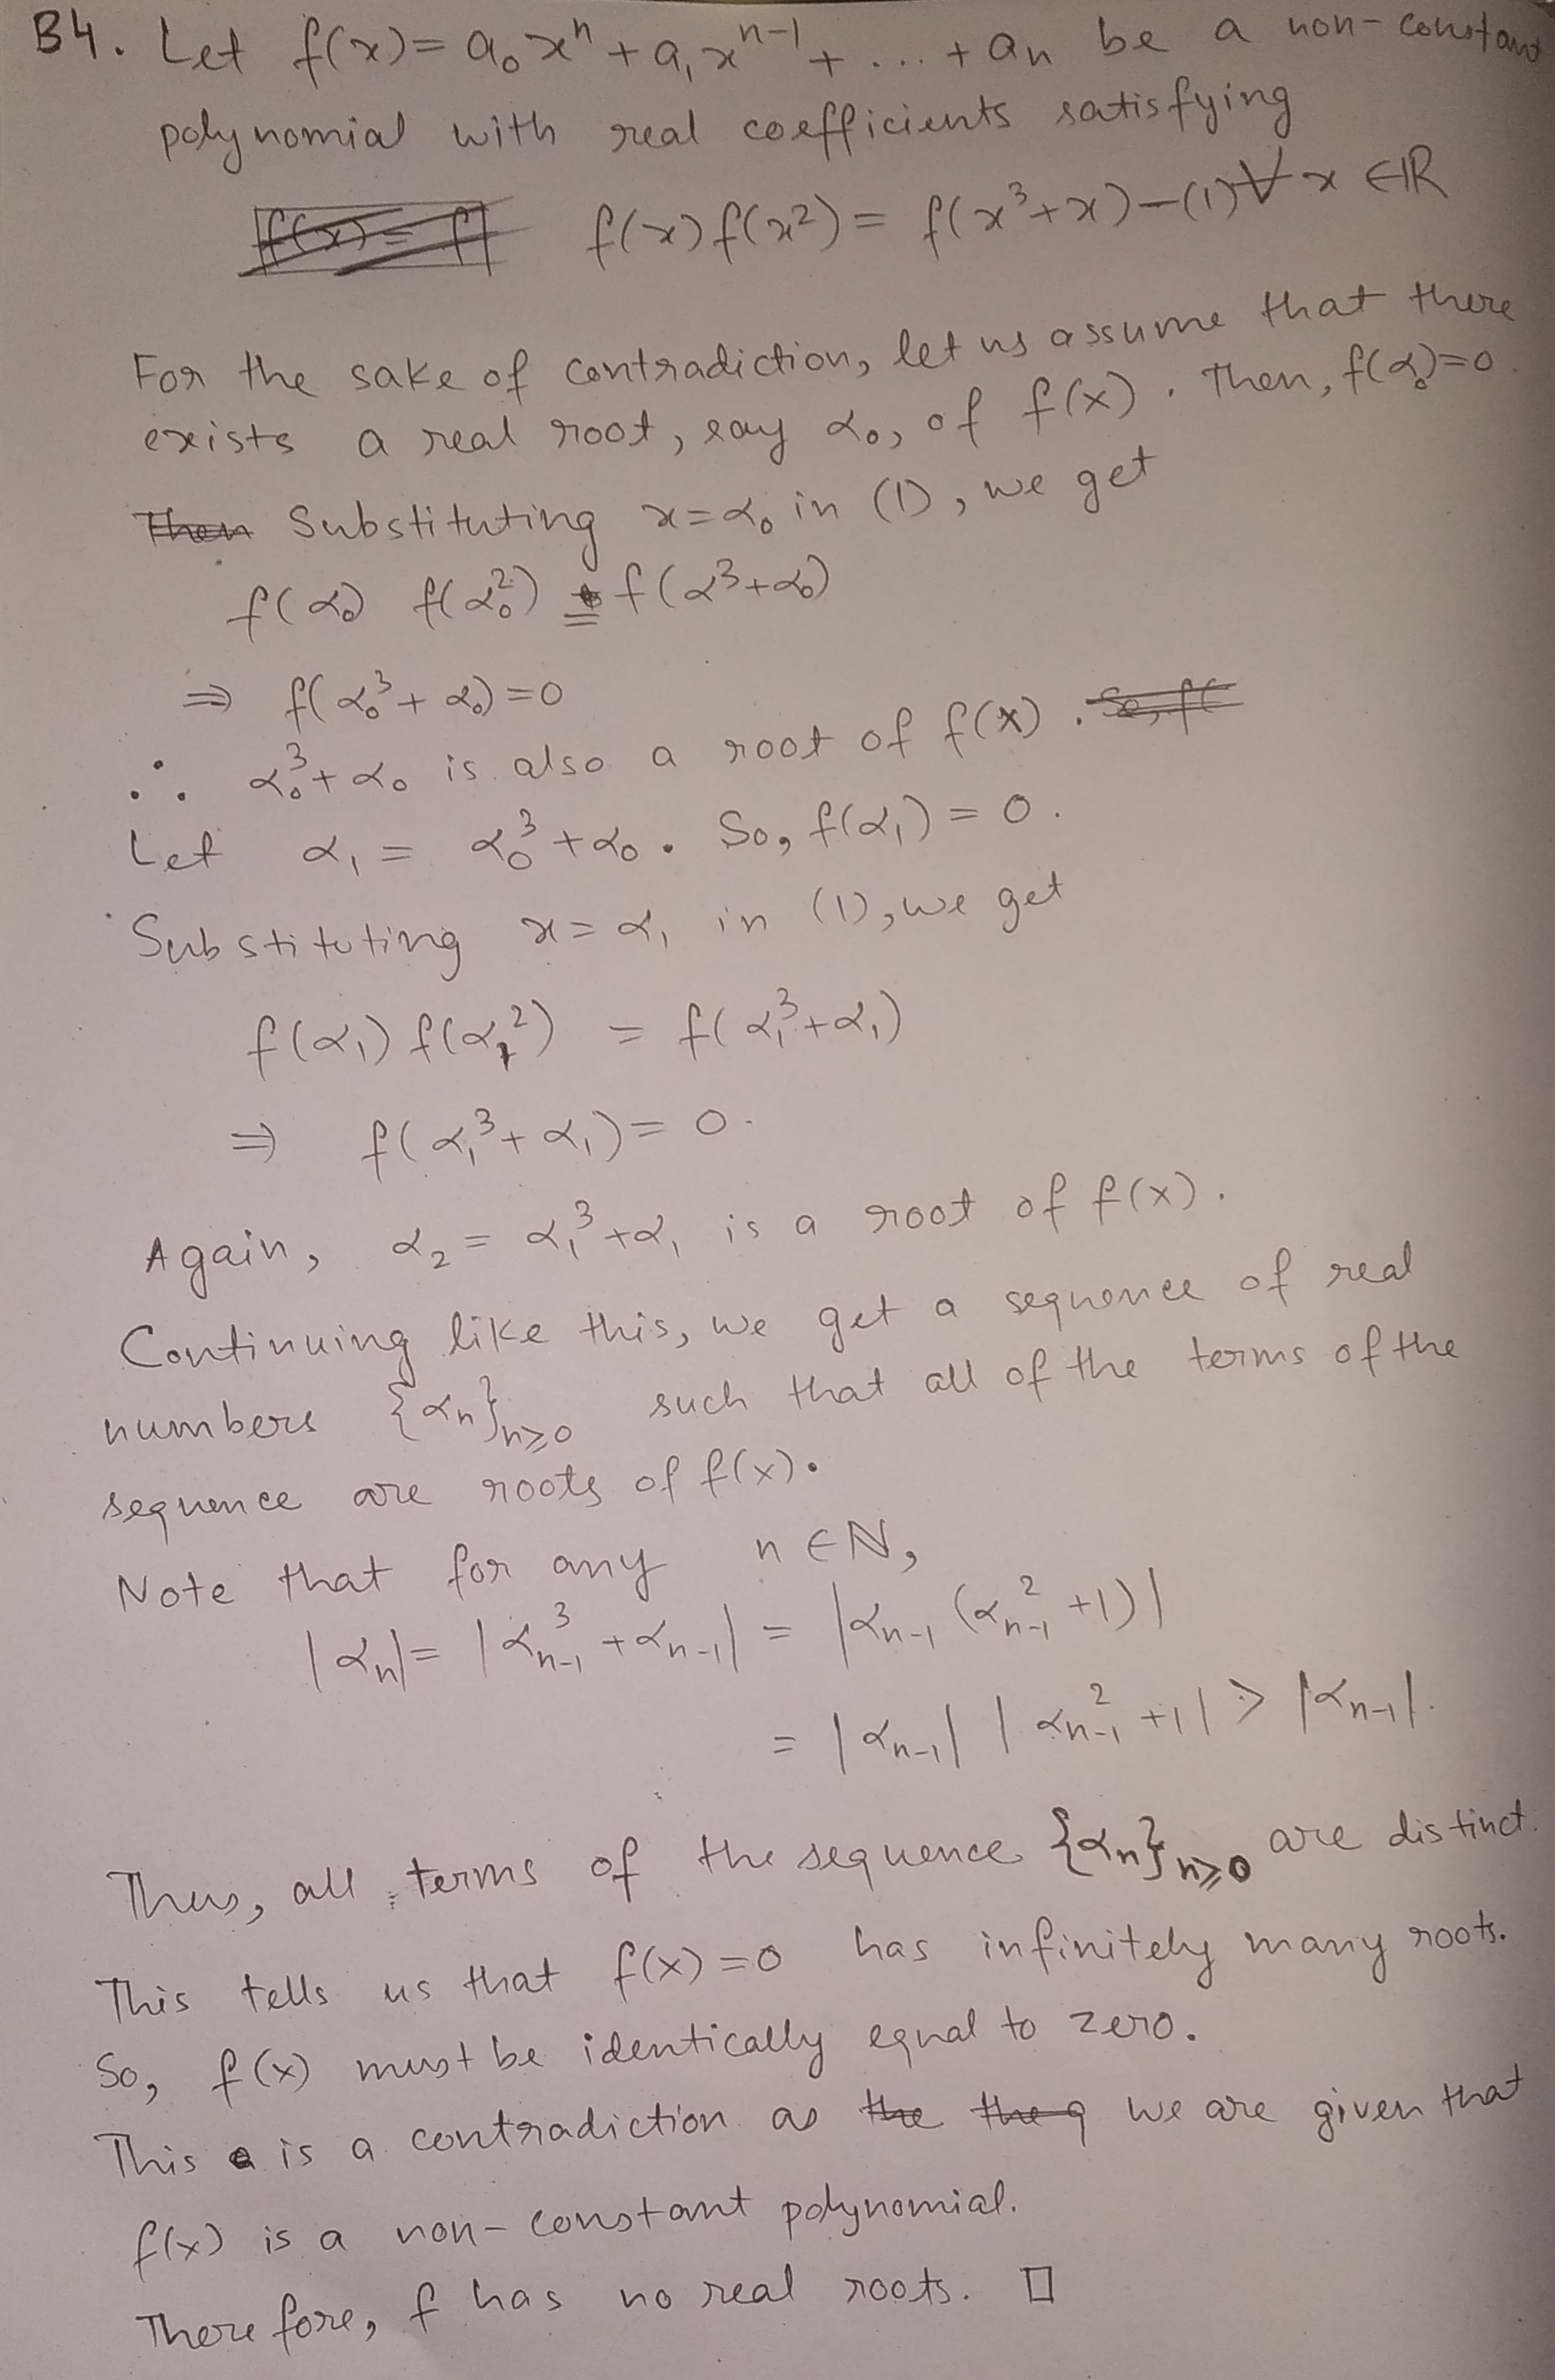 B4. Let f(x) = a₀xⁿ + a₁xⁿ⁻¹ + ... + aₙ be a non-constant
polynomial with real coefficients satisfying
f(x) f(x²) = f(x³+x) — (1) ∀ x ∈ ℝ
For the sake of contradiction, let us assume that there
exists a real root, say α₀, of f(x). Then, f(α₀)=0.
Substituting x=α₀ in (1), we get
f(α₀) f(α₀²) = f(α³+α₀)
⇒ f(α₀³+α₀)=0
∴ α₀³+α₀ is also a root of f(x).
Let α₁ = α₀³+α₀. So, f(α₁) = 0.
Substituting x=α₁ in (1), we get
f(α₁) f(α₁²) = f(α₁³+α₁)
⇒ f(α₁³+α₁) = 0.
Again, α₂ = α₁³+α₁ is a root of f(x).
Continuing like this, we get a sequence of real
numbers {αₙ}ₙ≥₀ such that all of the terms of the
sequence are roots of f(x).
Note that for any n ∈ ℕ,
|αₙ| = |αₙ₋₁³ + αₙ₋₁| = |αₙ₋₁(αₙ₋₁²+1)|
= |αₙ₋₁| |αₙ₋₁²+1| > |αₙ₋₁|.
Thus, all terms of the sequence {αₙ}ₙ≥₀ are distinct.
This tells us that f(x)=0 has infinitely many roots.
So, f(x) must be identically equal to zero.
This is a contradiction as we are given that
f(x) is a non-constant polynomial.
Therefore, f has no real roots. □